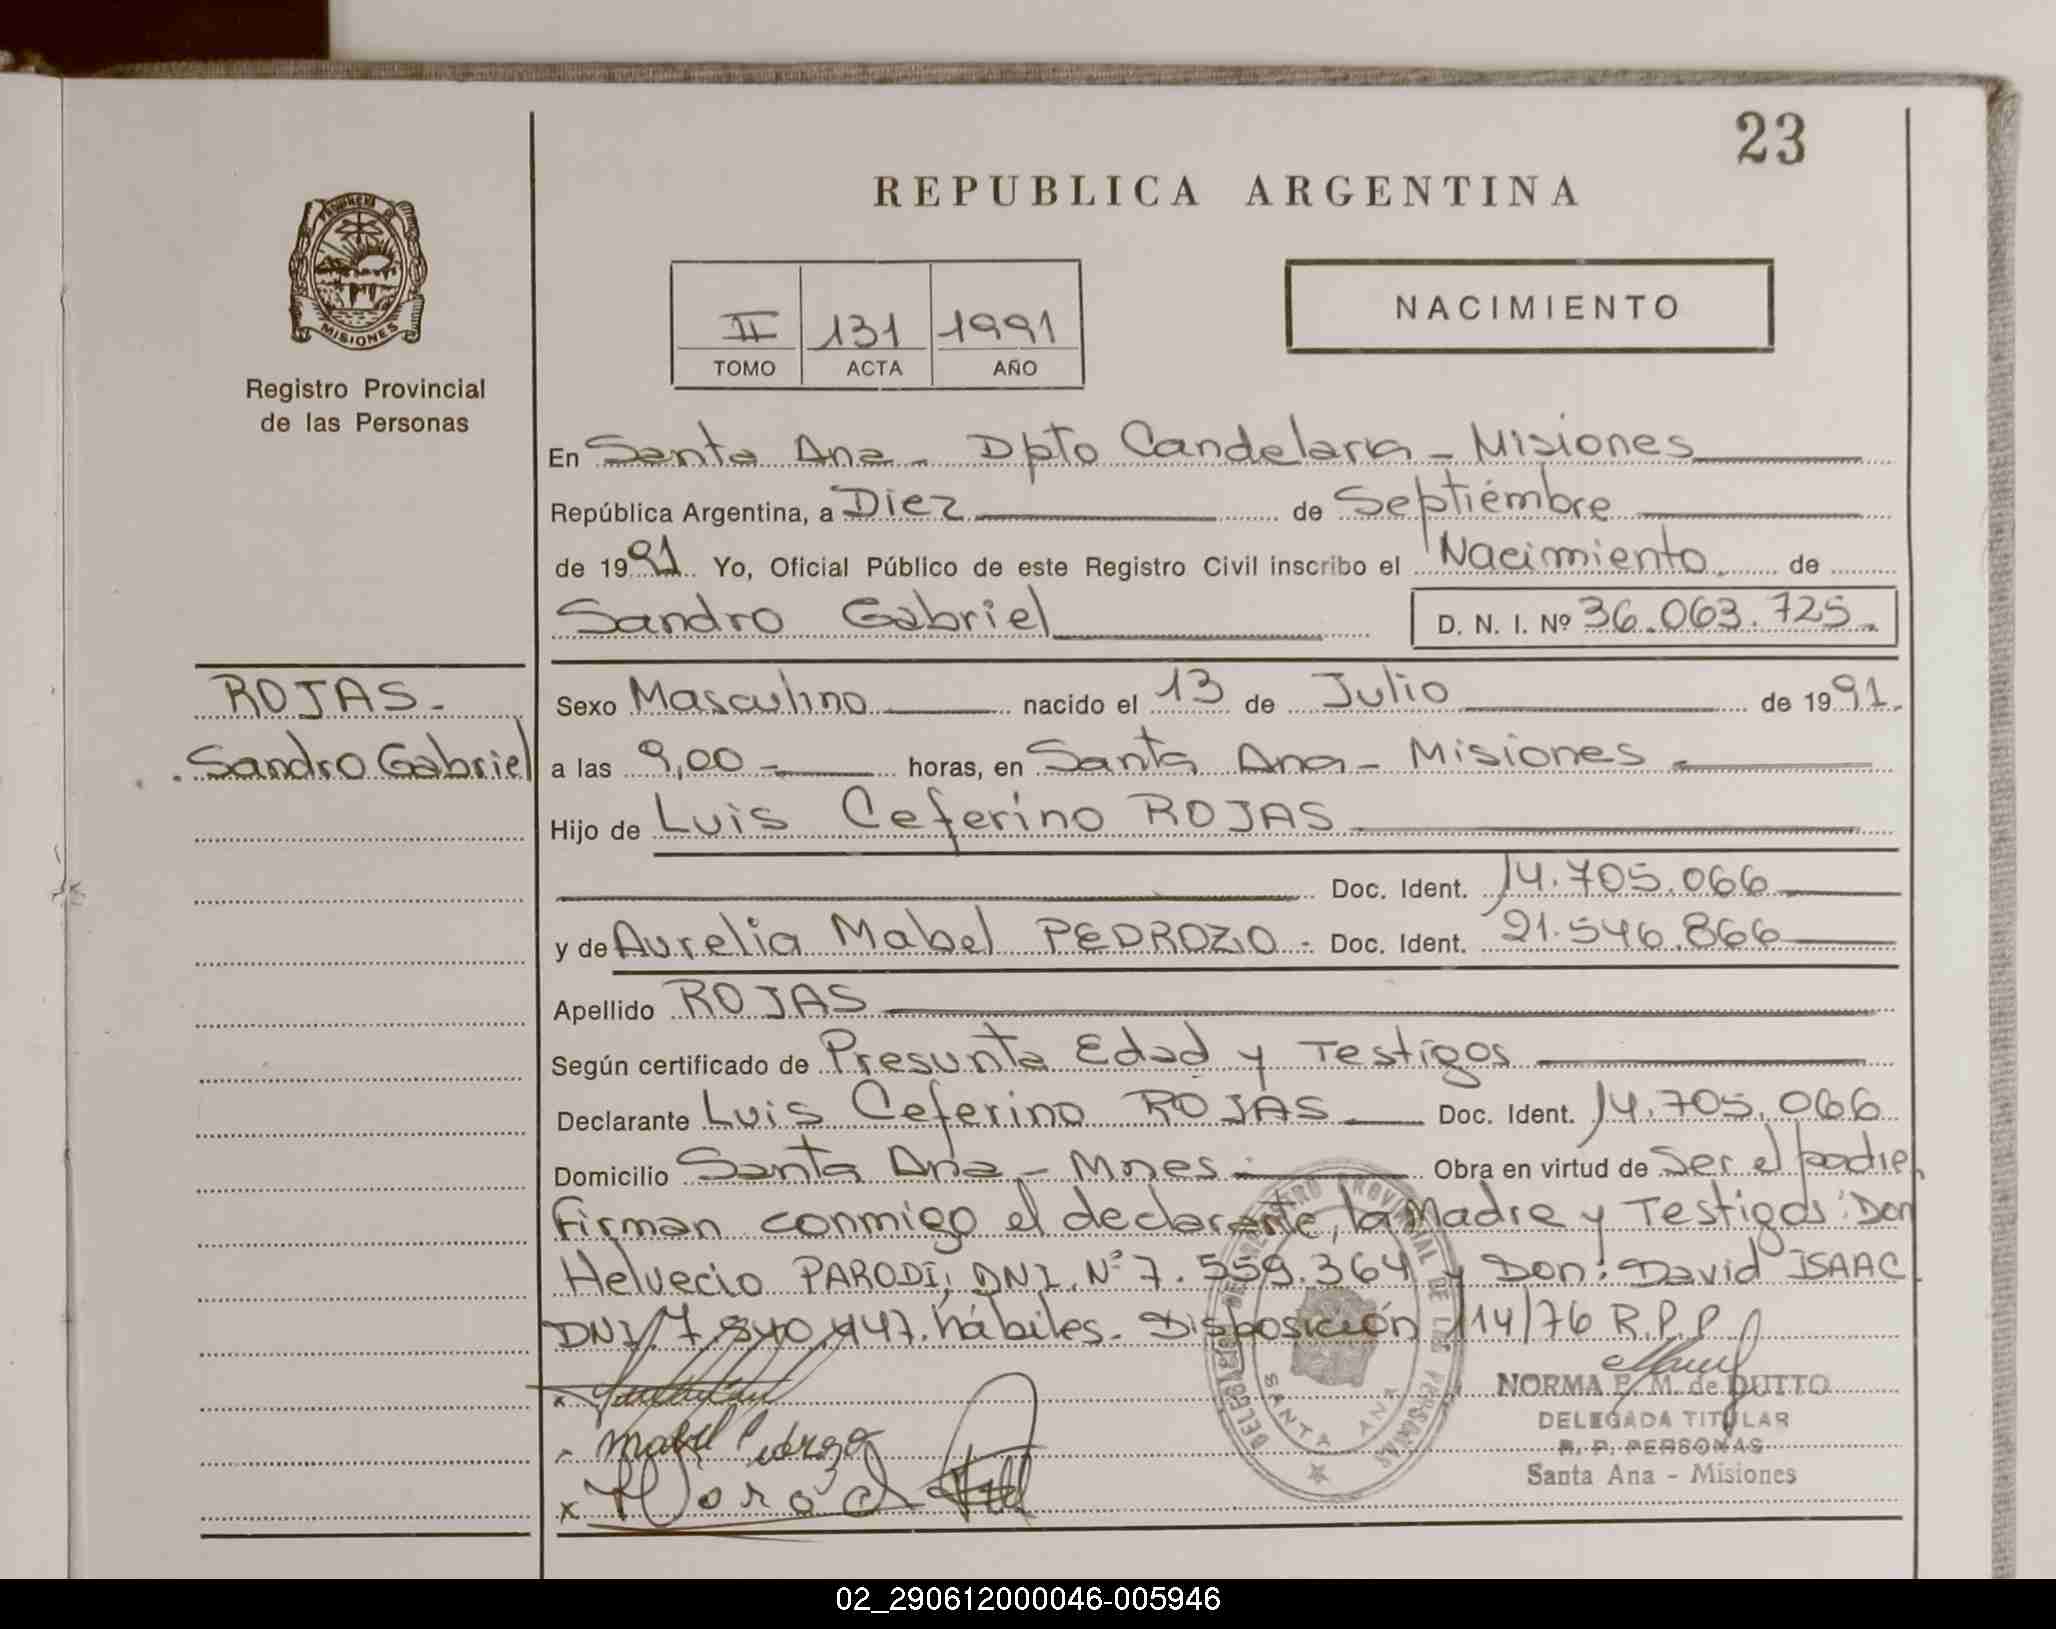 23
REPUBLICA ARGENTINA
PROVINCIA DE
MISIONES
Registro Provincial
de las Personas
II 131 1991
TOMO ACTA AÑO
NACIMIENTO
En Santa Ana - Dpto Candelaria - Misiones
República Argentina, a Diez de Septiémbre
de 1991 Yo, Oficial Público de este Registro Civil inscribo el Nacimiento de
Sandro Gabriel D. N. I. Nº 36.063.725.
ROJAS.
Sandro Gabriel
Sexo Masculino nacido el 13 de Julio de 1991.
a las 9,00 horas, en Santa Ana - Misiones
Hijo de Luis Ceferino ROJAS
Doc. Ident. 14.705.066
y de Aurelia Mabel PEDROZO - Doc. Ident. 21.546.866
Apellido ROJAS
Según certificado de Presunta Edad y Testigos
Declarante Luis Ceferino ROJAS Doc. Ident. 14.705.066
Domicilio Santa Ana - Mnes - Obra en virtud de Ser el padre,
Firman conmigo el declarante, la Madre y Testigos: Don
Helvecio PARODI, DNI. Nº 7.559.364 y Don: David ISAAC
DNI. 7.840.447. hábiles. Disposición 114/76 R.P.P.
Mabel Pedrozo
NORMA E. M. de DUTTO
DELEGADA TITULAR
R. P. PERSONAS
Santa Ana - Misiones
SANTA ANA
02_290612000046-005946